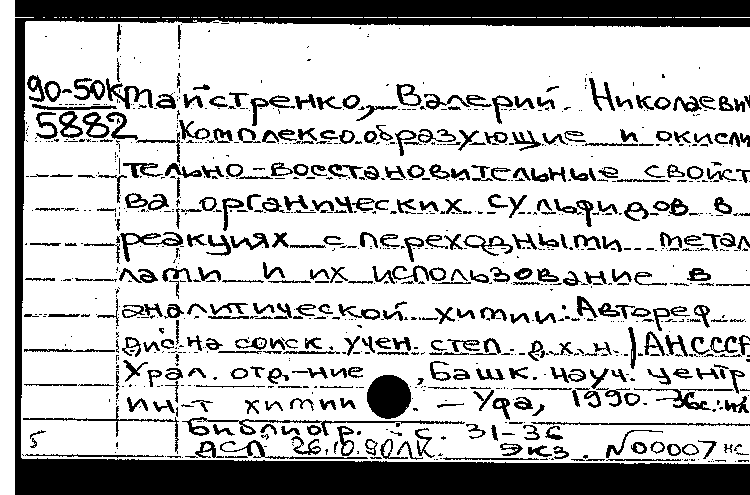 90-50К Майстренко, Валерий Николаевич
5882 Комплексообразующие и окисли
тельно-восстановительные свойст
ва органических сульфидов в
реакциях с переходными метал
лами и их использование в
аналитической химии: Автореф.
дис на соиск. учен. степ. д.х.н. / АНСССР
Урал. отд-ние, Башк. науч. центр
Ин-т химии. – Уфа, 1990. – 36с.:
Библиогр.: с. 31-36
5 ДСП 26.10.90 ЛК. Экз. №00007 нс